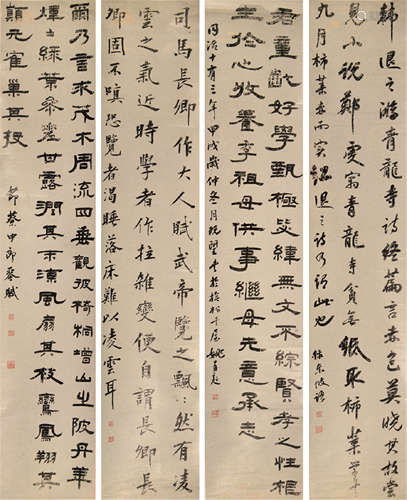 韓退之游青龍寺詩終篇言赤色莫曉其故嘗
見小說鄭虔寓青龍寺貧無紙取柿葉學書
九月柿葉赤而實紅退之詩乃謂此也 錄東坡語
君童齔好學甄極毖緯無文不綜賢孝之性根
生於心收養季祖母供事繼母先意承志
同治十有三年甲戌歲仲冬月 姚孟起
司馬長卿作大人賦武帝覽之飄飄然有凌
雲之氣近時學者作拉雜變便自謂長卿長
卿固不嗔恐覽者渴睡落床難以凌雲耳
爾乃言求茂木周流四垂觀彼椅桐增山之陂丹華
煒煒綠葉參差甘露潤其末涼風扇其枝鸞鳳翔其
巔元隺巢其枝
節蔡中郎琴賦